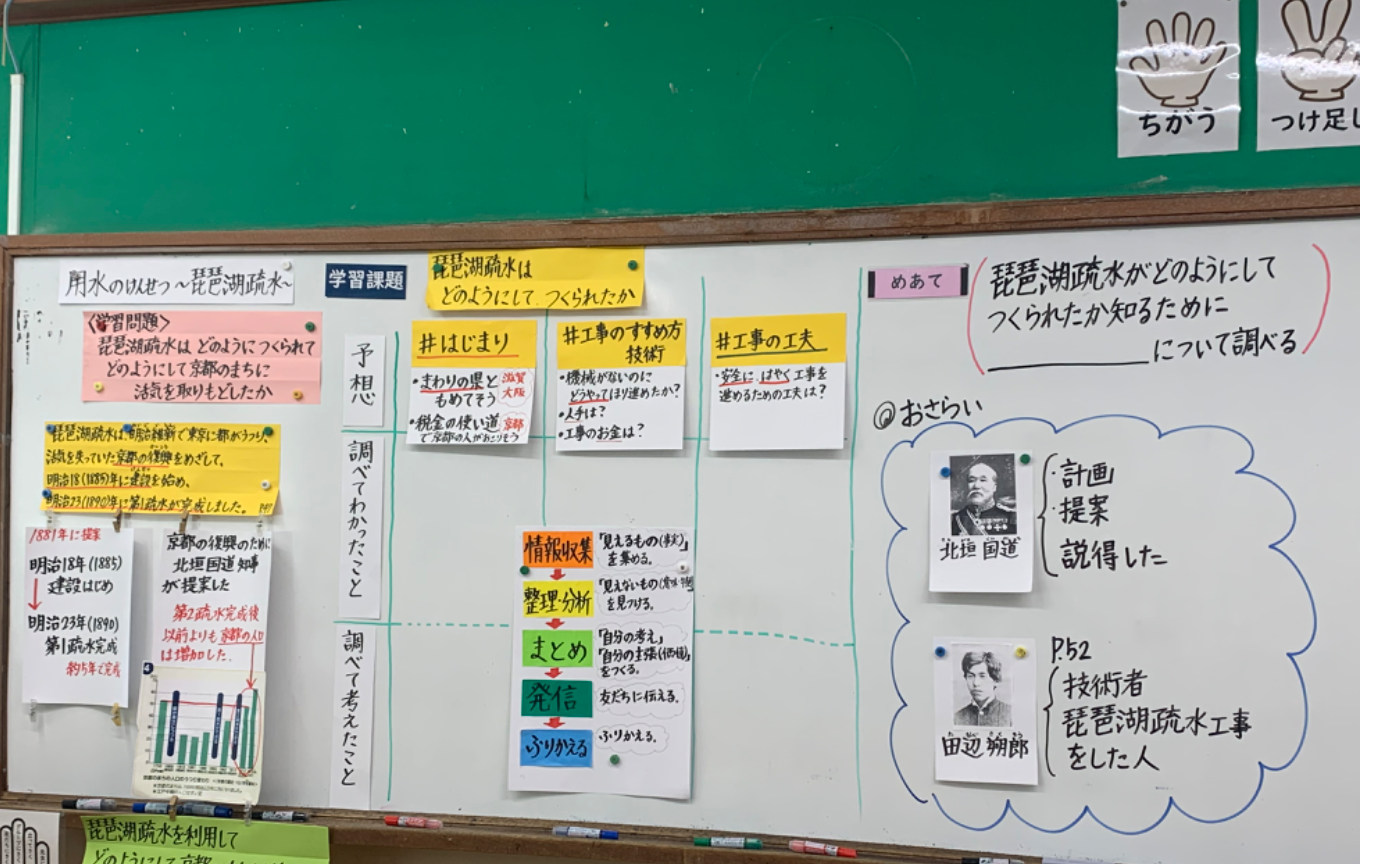 ちがう
つけ足し
用水のけんせつ～琵琶湖疏水～
〈学習問題〉
琵琶湖疏水は どのようにつくられて
どのようにして京都のまちに
活気を取りもどしたか
琵琶湖疏水は、明治維新で東京に都がうつり、
活気を失っていた京都の復興をめざして、
明治18(1885)年に建設を始め、
明治23(1890)年に第1疏水が完成しました。
1881年に提案
明治18年(1885)
建設はじめ
明治23年(1890)
第1疏水完成
約5年で完成
京都の復興のために
北垣国道知事
が提案した
第2疏水完成後
以前よりも京都の人口
は増加した.
4
琵琶湖疏水を利用して
学習課題
琵琶湖疏水は
どのようにして つくられたか
予想
調べてわかったこと
調べて考えたこと
#はじまり
・まわりの県と 滋賀
もめてそう 大阪
・税金の使い道 京都
で京都の人がおこりそう
#工事のすすめ方
技術
・機械がないのに
どうやってほり進めたか?
・人手は?
・工事のお金は?
#工事の工夫
・安全に はやく工事を
進めるための工夫は?
情報収集 「見えるもの(事実)」
を集める。
整理・分析 「見えないもの
を見つける。
まとめ 「自分の考え」
「自分の主張(価値)」
をつくる。
発信 友だちに伝える。
ふりかえる ふりかえる。
めあて
琵琶湖疏水がどのようにして
つくられたか知るために
について調べる
おさらい
北垣国道
・計画
・提案
・説得した
田辺朔郎
P.52
技術者
琵琶湖疏水工事
をした人